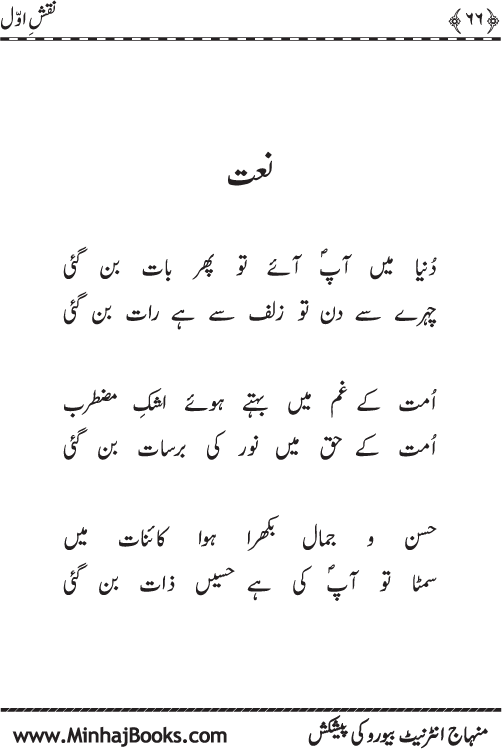 نقشِ اوّل
﴿۶۶﴾
نعت
دُنیا میں آپؐ آئے تو پھر بات بن گئی
چہرے سے دن تو زلف سے ہے رات بن گئی
اُمت کے غم میں بہتے ہوئے اشکِ مضطرب
اُمت کے حق میں نور کی برسات بن گئی
حسن و جمال بکھرا ہوا کائنات میں
سمٹا تو آپؐ کی ہے حسیں ذات بن گئی
منہاج انٹرنیٹ بیورو کی پیشکش
www.MinhajBooks.com